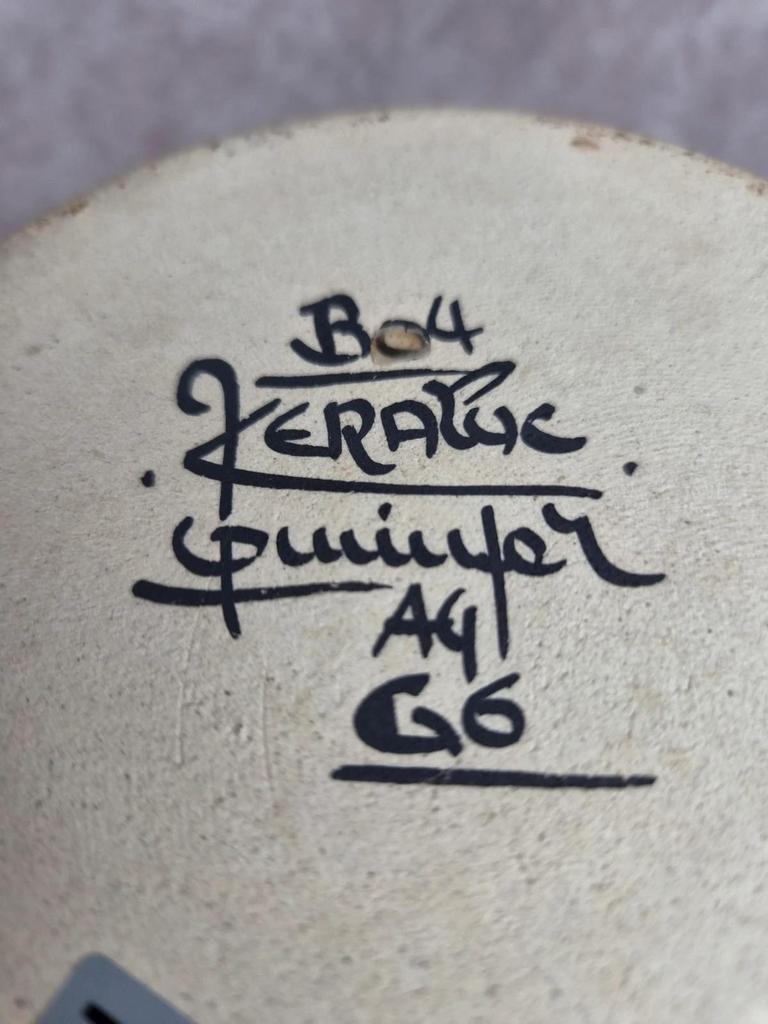 B 4
KERALUC
Quimper
AG
G6